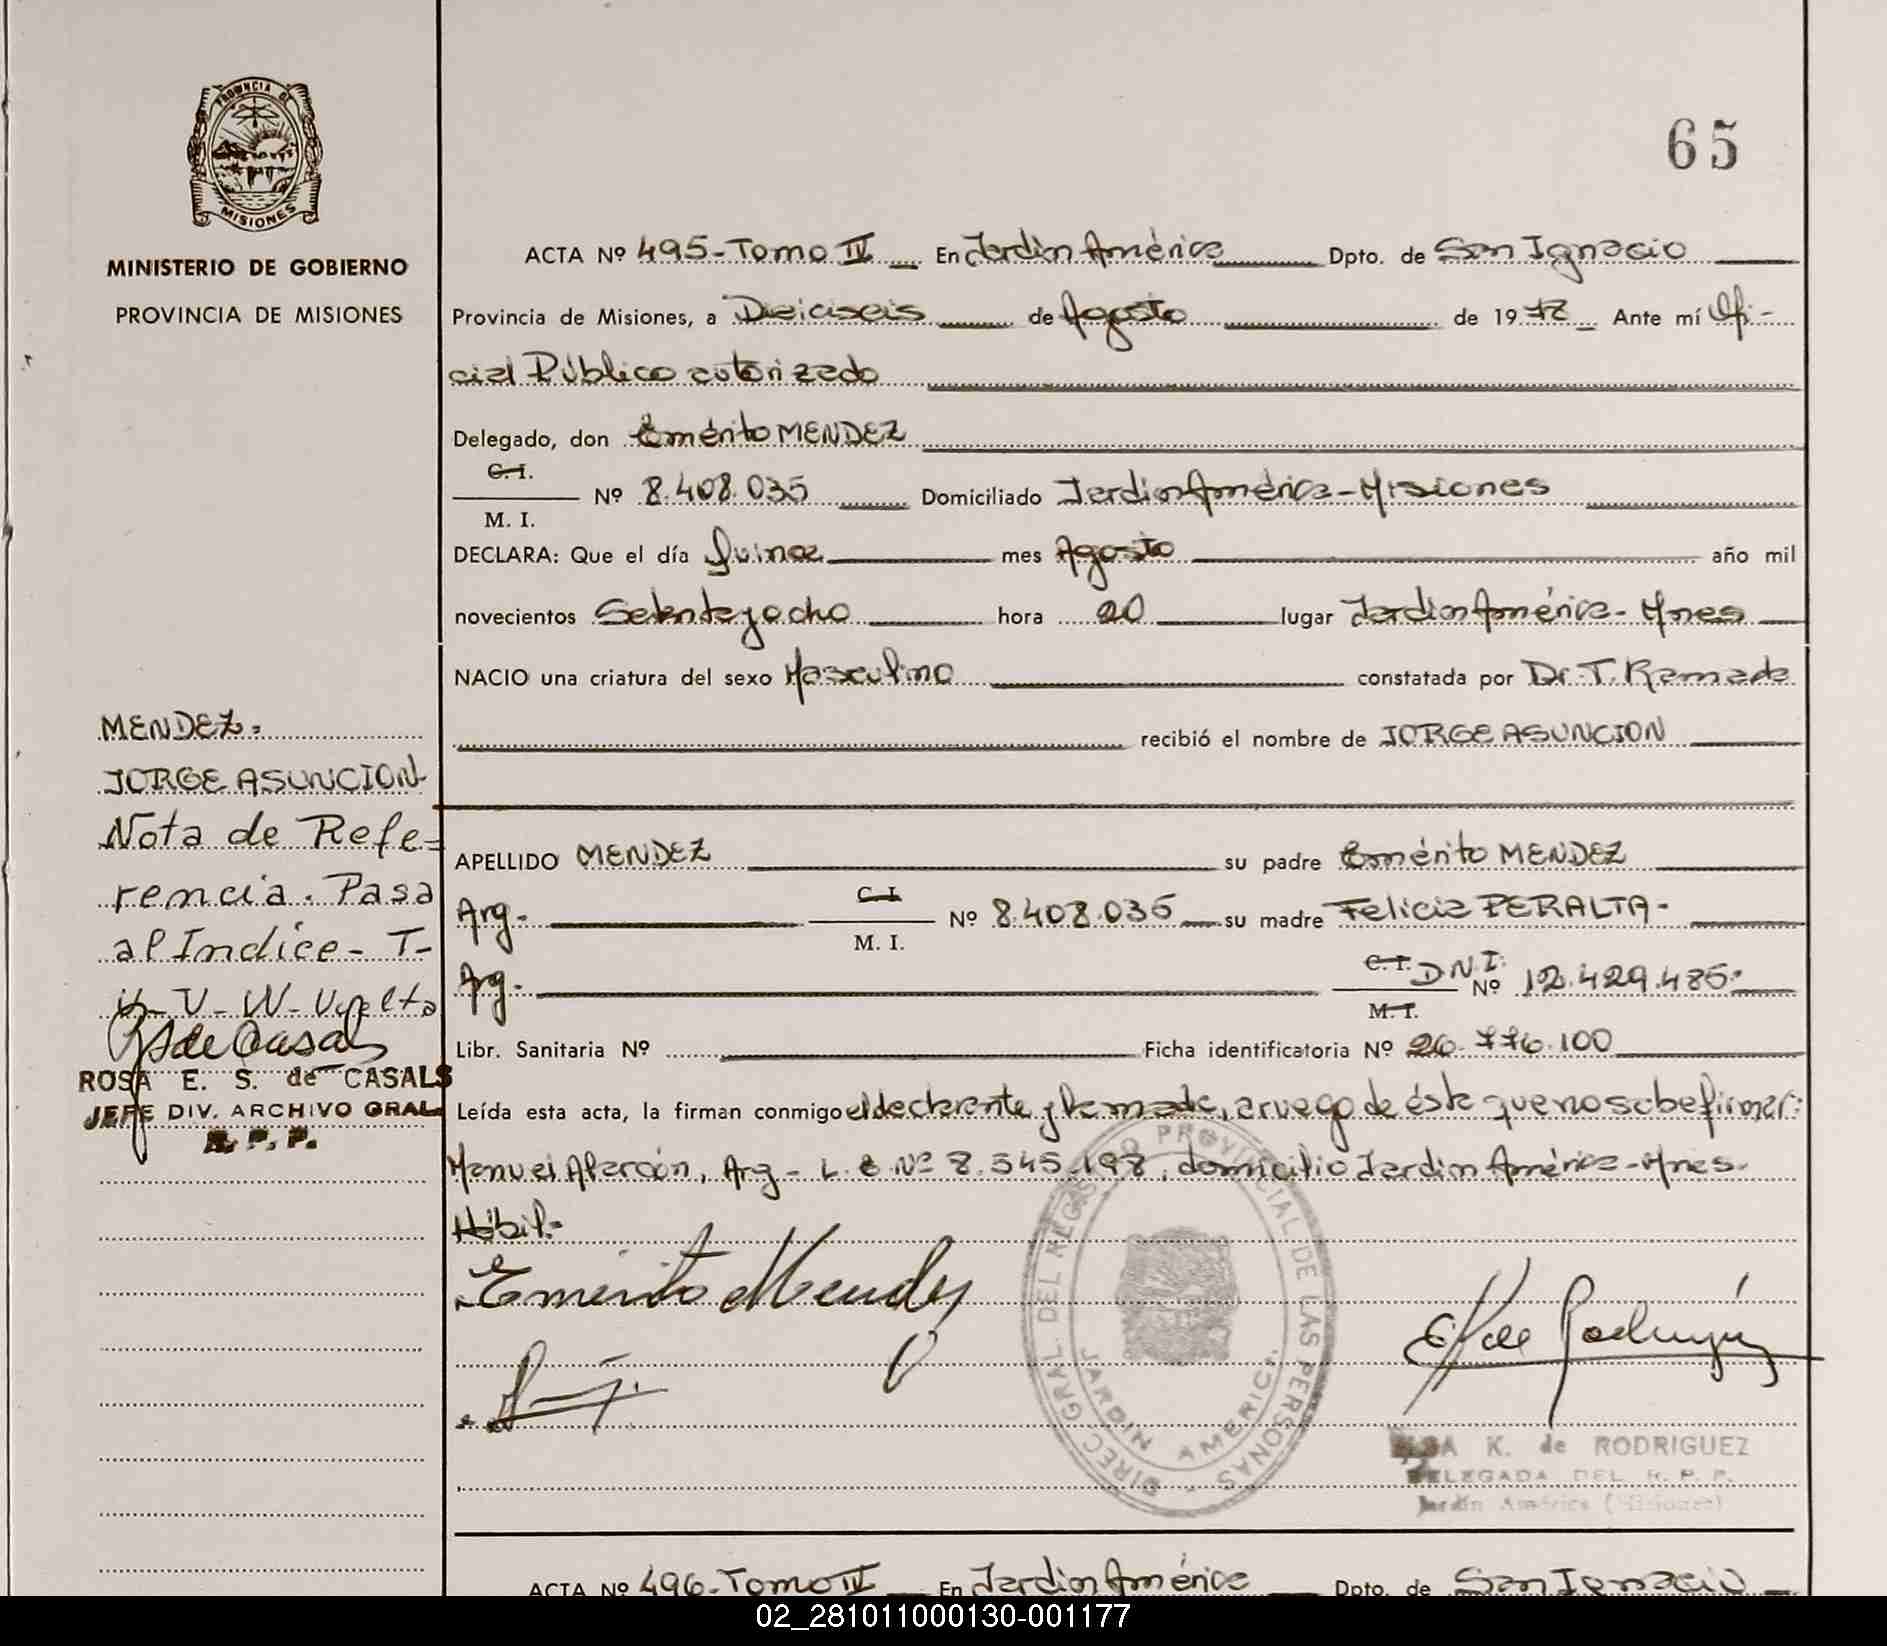 PROVINCIA DE
MISIONES
MINISTERIO DE GOBIERNO
PROVINCIA DE MISIONES
65
ACTA Nº 495-Tomo IV En Jardín América Dpto. de San Ignacio
Provincia de Misiones, a Dieciseis de Agosto de 1978 Ante mí Ofi-
cial Público autorizado
Delegado, don Emérito MENDEZ
C. I.
M. I. Nº 8.408.035 Domiciliado Jardín América-Misiones
DECLARA: Que el día Quince mes Agosto año mil
novecientos Setentayocho hora 20 lugar Jardín América-Mnes
NACIO una criatura del sexo Masculino constatada por Dr. T. Ramada
recibió el nombre de JORGE ASUNCION
MENDEZ.
JORGE ASUNCION
Nota de Refe=
rencia. Pasa
al Indice- T-
U- V- W- Vuelta
RSdeCasals
ROSA E. S. de CASALS
JEFE DIV. ARCHIVO GRAL
R. P. P.
APELLIDO MENDEZ su padre Emérito MENDEZ
Arg. C. I. M. I. Nº 8.408.035 su madre Felicia PERALTA-
Arg. C. I. D N I. M. I. Nº 12.429.485.
Libr. Sanitaria Nº Ficha identificatoria Nº 26.776.100
Leída esta acta, la firman conmigo el declarante y la madre, a ruego de ésta que no sabe firmar:
Manuel Alarcón, Arg- L. E Nº 8.545.198, domicilio Jardín América-Mnes.
Hábil.
Emérito Mendez
E K de Rodriguez
DIREC GRAL DEL REGISTRO PROVINCIAL DE LAS PERSONAS
JARDIN AMERICA
ELSA K. de RODRIGUEZ
DELEGADA DEL R. P. P.
Jardín América (Misiones)
ACTA Nº 496-Tomo IV En Jardín América Dpto. de San Ignacio
02_281011000130-001177